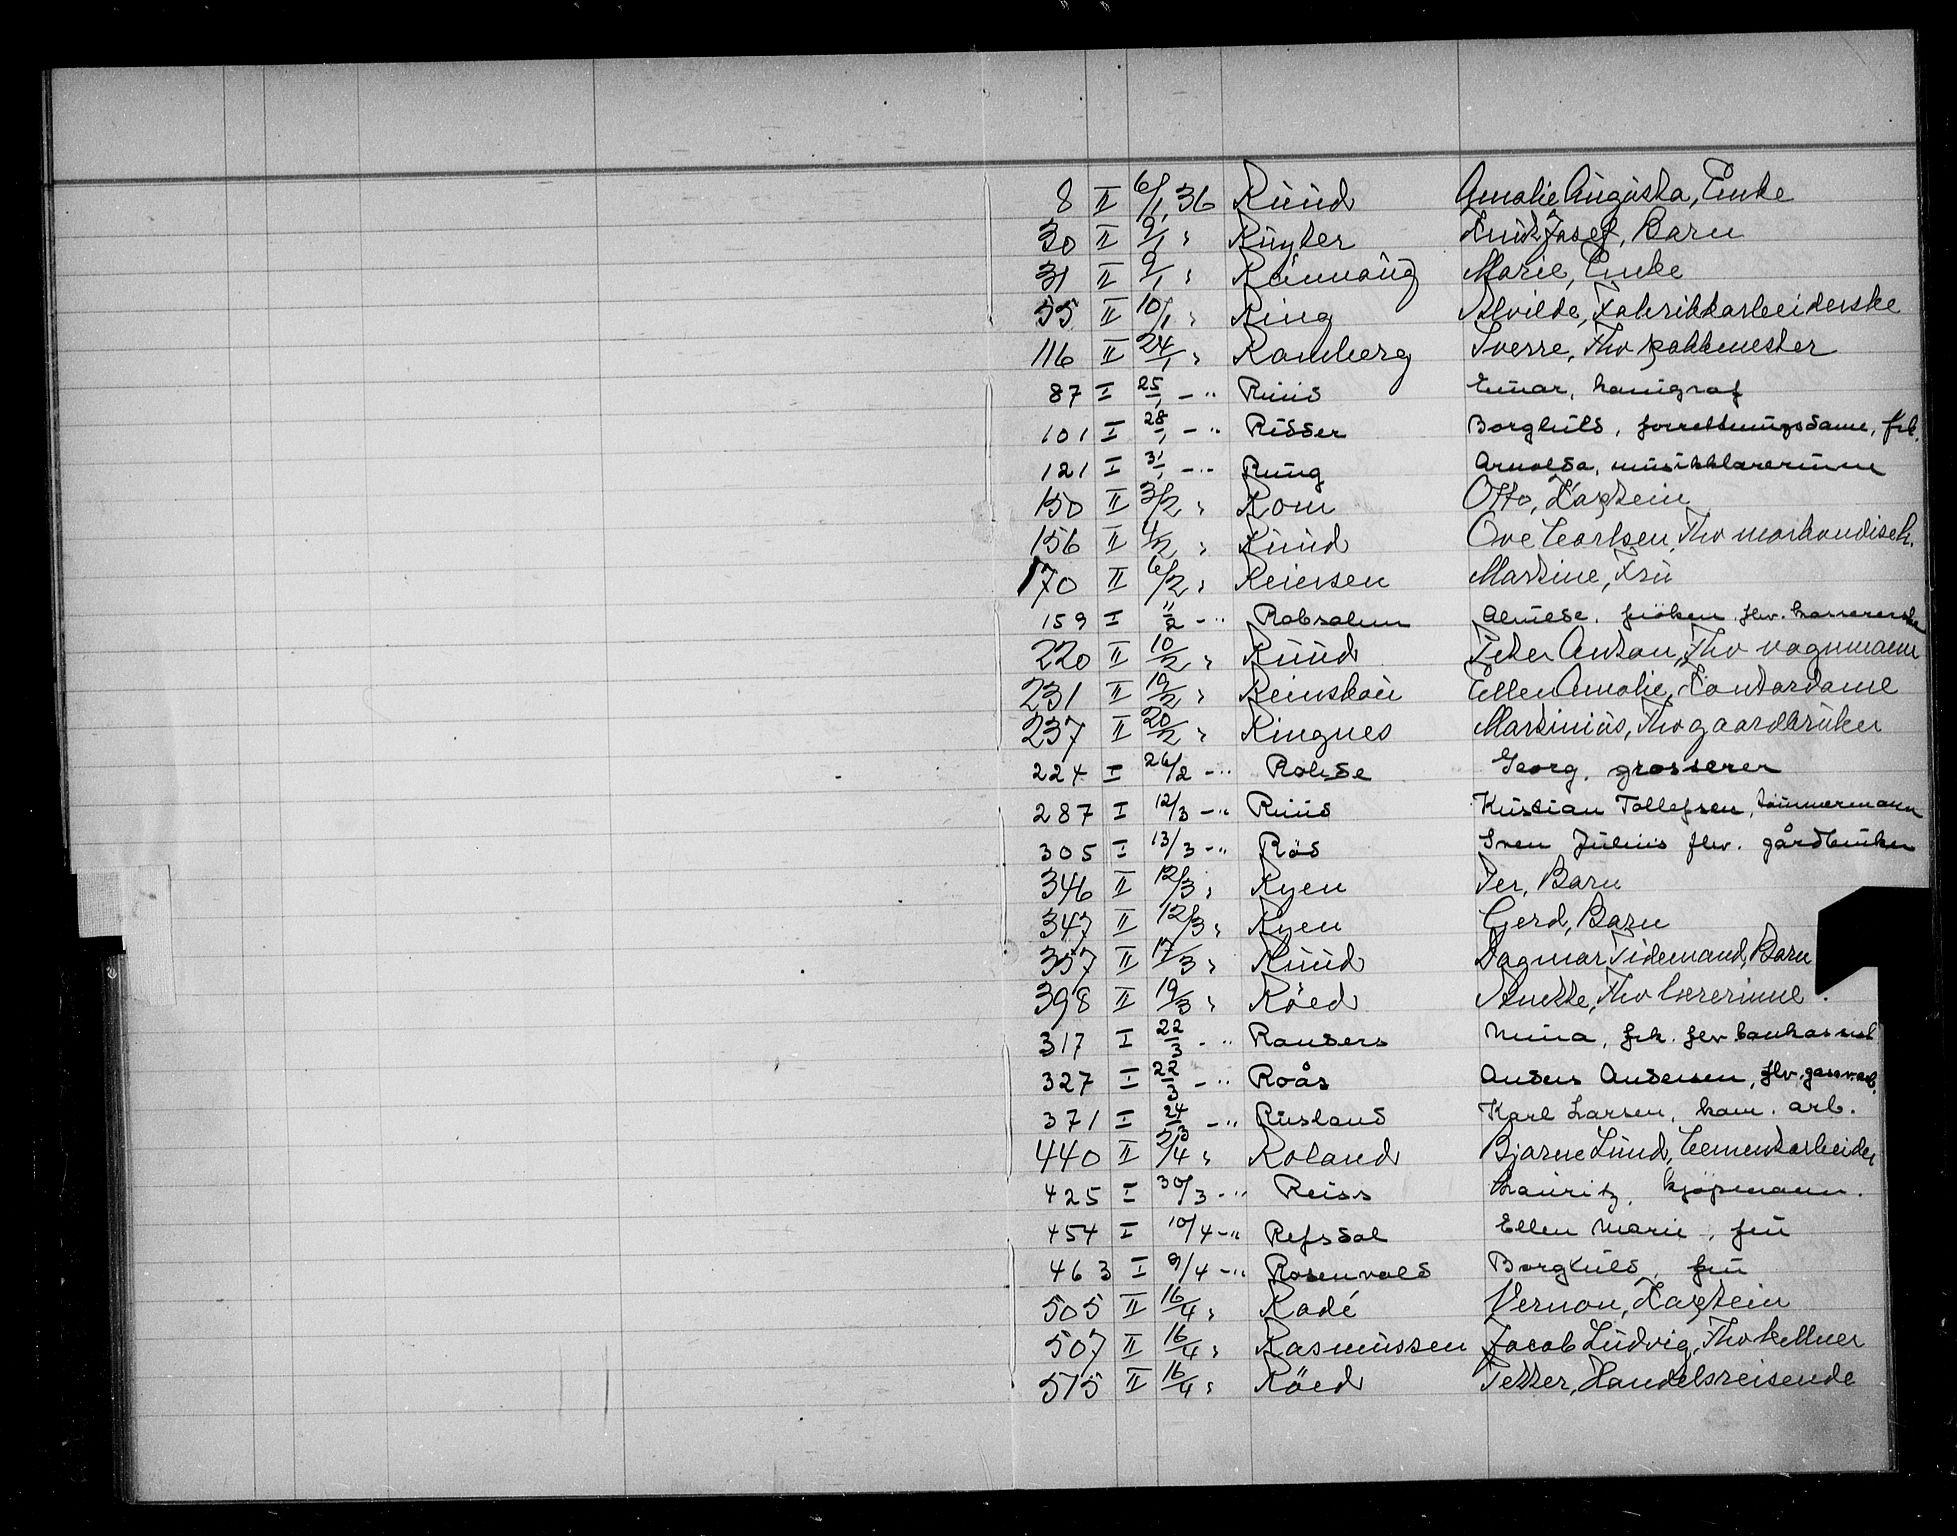 8 II 6/1 36 Ruud Amalie Augusta, Enke
30 II 9/1 " Ruyter Knut Josef, Barn
31 II 9/1 " Marie, Enke
55 II 10/1 " Ring Alvilde, Fabrikkarbeiderske
116 II 24/1 " Ramberg Sverre, Fhv pakkmester
87 I 25/1 - " Ruud Einar,
101 I 28/1 - " Risser Borghild, forretningsdame, frk.
121 I 31/1 - " Ring Arnolda, musikklærerinne
150 II 3/2 " Rom Otto, Kaptein
156 II 4/2 " Ruud Ove Carlsen, Fhv markandisch.
170 II 6/2 " Reiersen Martine, Fru
159 I "/2 - " Robsahm Almede, fröken, flv. kassererske
220 II 10/2 " Ruud Peter Anton, Fhv vognmann
231 II 19/2 " Reinskau Ellen Amalie, Kontordame
237 II 20/2 " Ringnes Martinius, Fhv gaardbruker
224 I 26/2 - " Rohde Georg, grosserer
287 I 12/3 - " Ruud Kristian Tollefsen, tömmermann
305 I 13/3 - " Röd Sven Julius flv. gårdbruker
346 II 12/3 " Ryen Per, Barn
347 II 12/3 " Ryen Gerd, Barn
357 II 17/3 " Ruud Dagmar Tidemand, Barn
398 II 19/3 " Röed Anette, Fhv lærerinne
317 I 22/3 - " Randers Nina, frk. flv bankassist
327 I 22/3 - " Roås Anders Andersen, flv. gassv.arb.
371 I 24/3 - " Rusland Karl Larsen, kom. arb.
440 II 3/4 " Roland Bjarne Lund, Cementarbeider
425 I 30/3 - " Reiss Lauritz, kjöpmann.
454 I 10/4 - " Refsdal Ellen Marie, fru
463 I 9/4 - " Rosenvold Borghild, fru
505 II 16/4 " Radé Vernon, Kaptein
507 II 16/4 " Rasmussen Jacob Ludvig, Fhv kellner
515 II 16/4 " Röed Petter, Handelsreisende